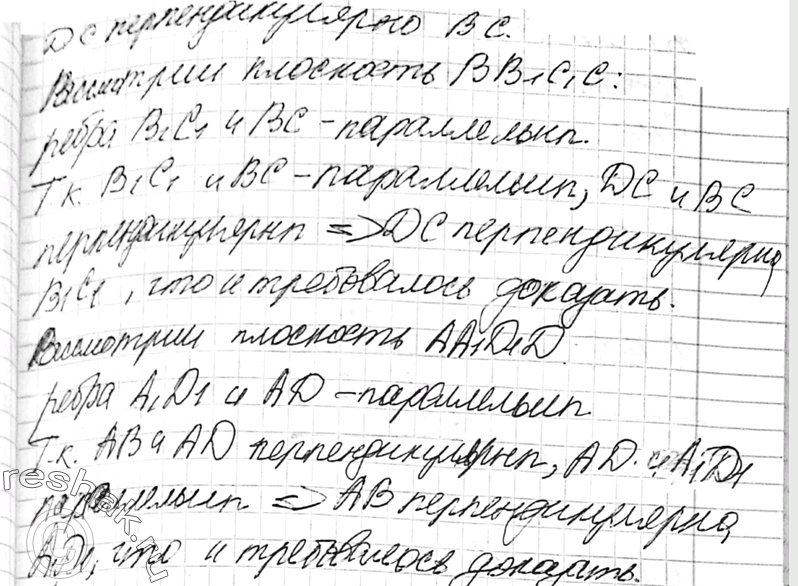 DC перпендикулярно BC.
Рассмотрим плоскость BB₁C₁C:
ребра B₁C₁ и BC – параллельны.
Т.к. B₁C₁ и BC – параллельны, DC и BC
перпендикулярны => DC перпендикулярна
B₁C₁, что и требовалось доказать.
Рассмотрим плоскость AA₁D₁D.
ребра A₁D₁ и AD – параллельны
Т.к. AB и AD перпендикулярны, AD и A₁D₁
параллельны => AB перпендикулярна
A₁D₁, что и требовалось доказать.
reshak.ru